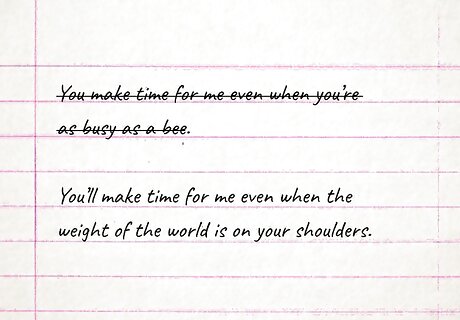 You make time for me even when you're
as busy as a bee.
You'll make time for me even when the
weight of the world is on your shoulders.